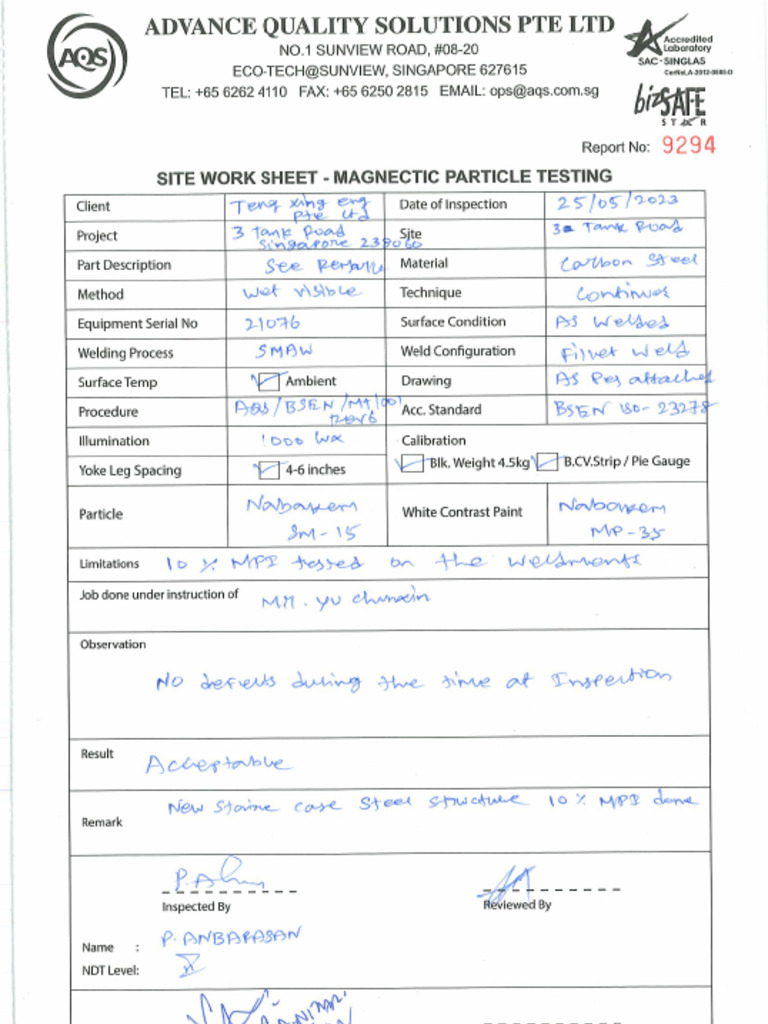 AQS
ADVANCE QUALITY SOLUTIONS PTE LTD
NO.1 SUNVIEW ROAD, #08-20
ECO-TECH@SUNVIEW, SINGAPORE 627615
TEL: +65 6262 4110 FAX: +65 6250 2815 EMAIL: ops@aqs.com.sg
Accredited
Laboratory
SAC-SINGLAS
bizSAFE
STAR
Report No: 9294
SITE WORK SHEET - MAGNECTIC PARTICLE TESTING
Client Teng xing eng Pte Ltd Date of Inspection 25/05/2023
Project 3 Tank Road Singapore 238060 Site Tank Road
Part Description See Remark Material Carbon Steel
Method Wet visible Technique Continues
Equipment Serial No 21076 Surface Condition AS Welded
Welding Process SMAW Weld Configuration Fillet Weld
Surface Temp Ambient Drawing AS Per attached
Procedure AQS/BSEN/MT/001 Rev6 Acc. Standard BSEN ISO-23278
Illumination 1000 Calibration
Yoke Leg Spacing 4-6 inches Blk. Weight 4.5kg B.CV.Strip / Pie Gauge
Particle SM-15 White Contrast Paint MP-35
Limitations 10 % MPI tested on the weldments
Job done under instruction of Mr. Yu
Observation
No defects during the time at Inspection
Result Acceptable
Remark New case Steel Structure 10 % MPI done
Inspected By Reviewed By
Name : P. ANBARASAN
NDT Level: II